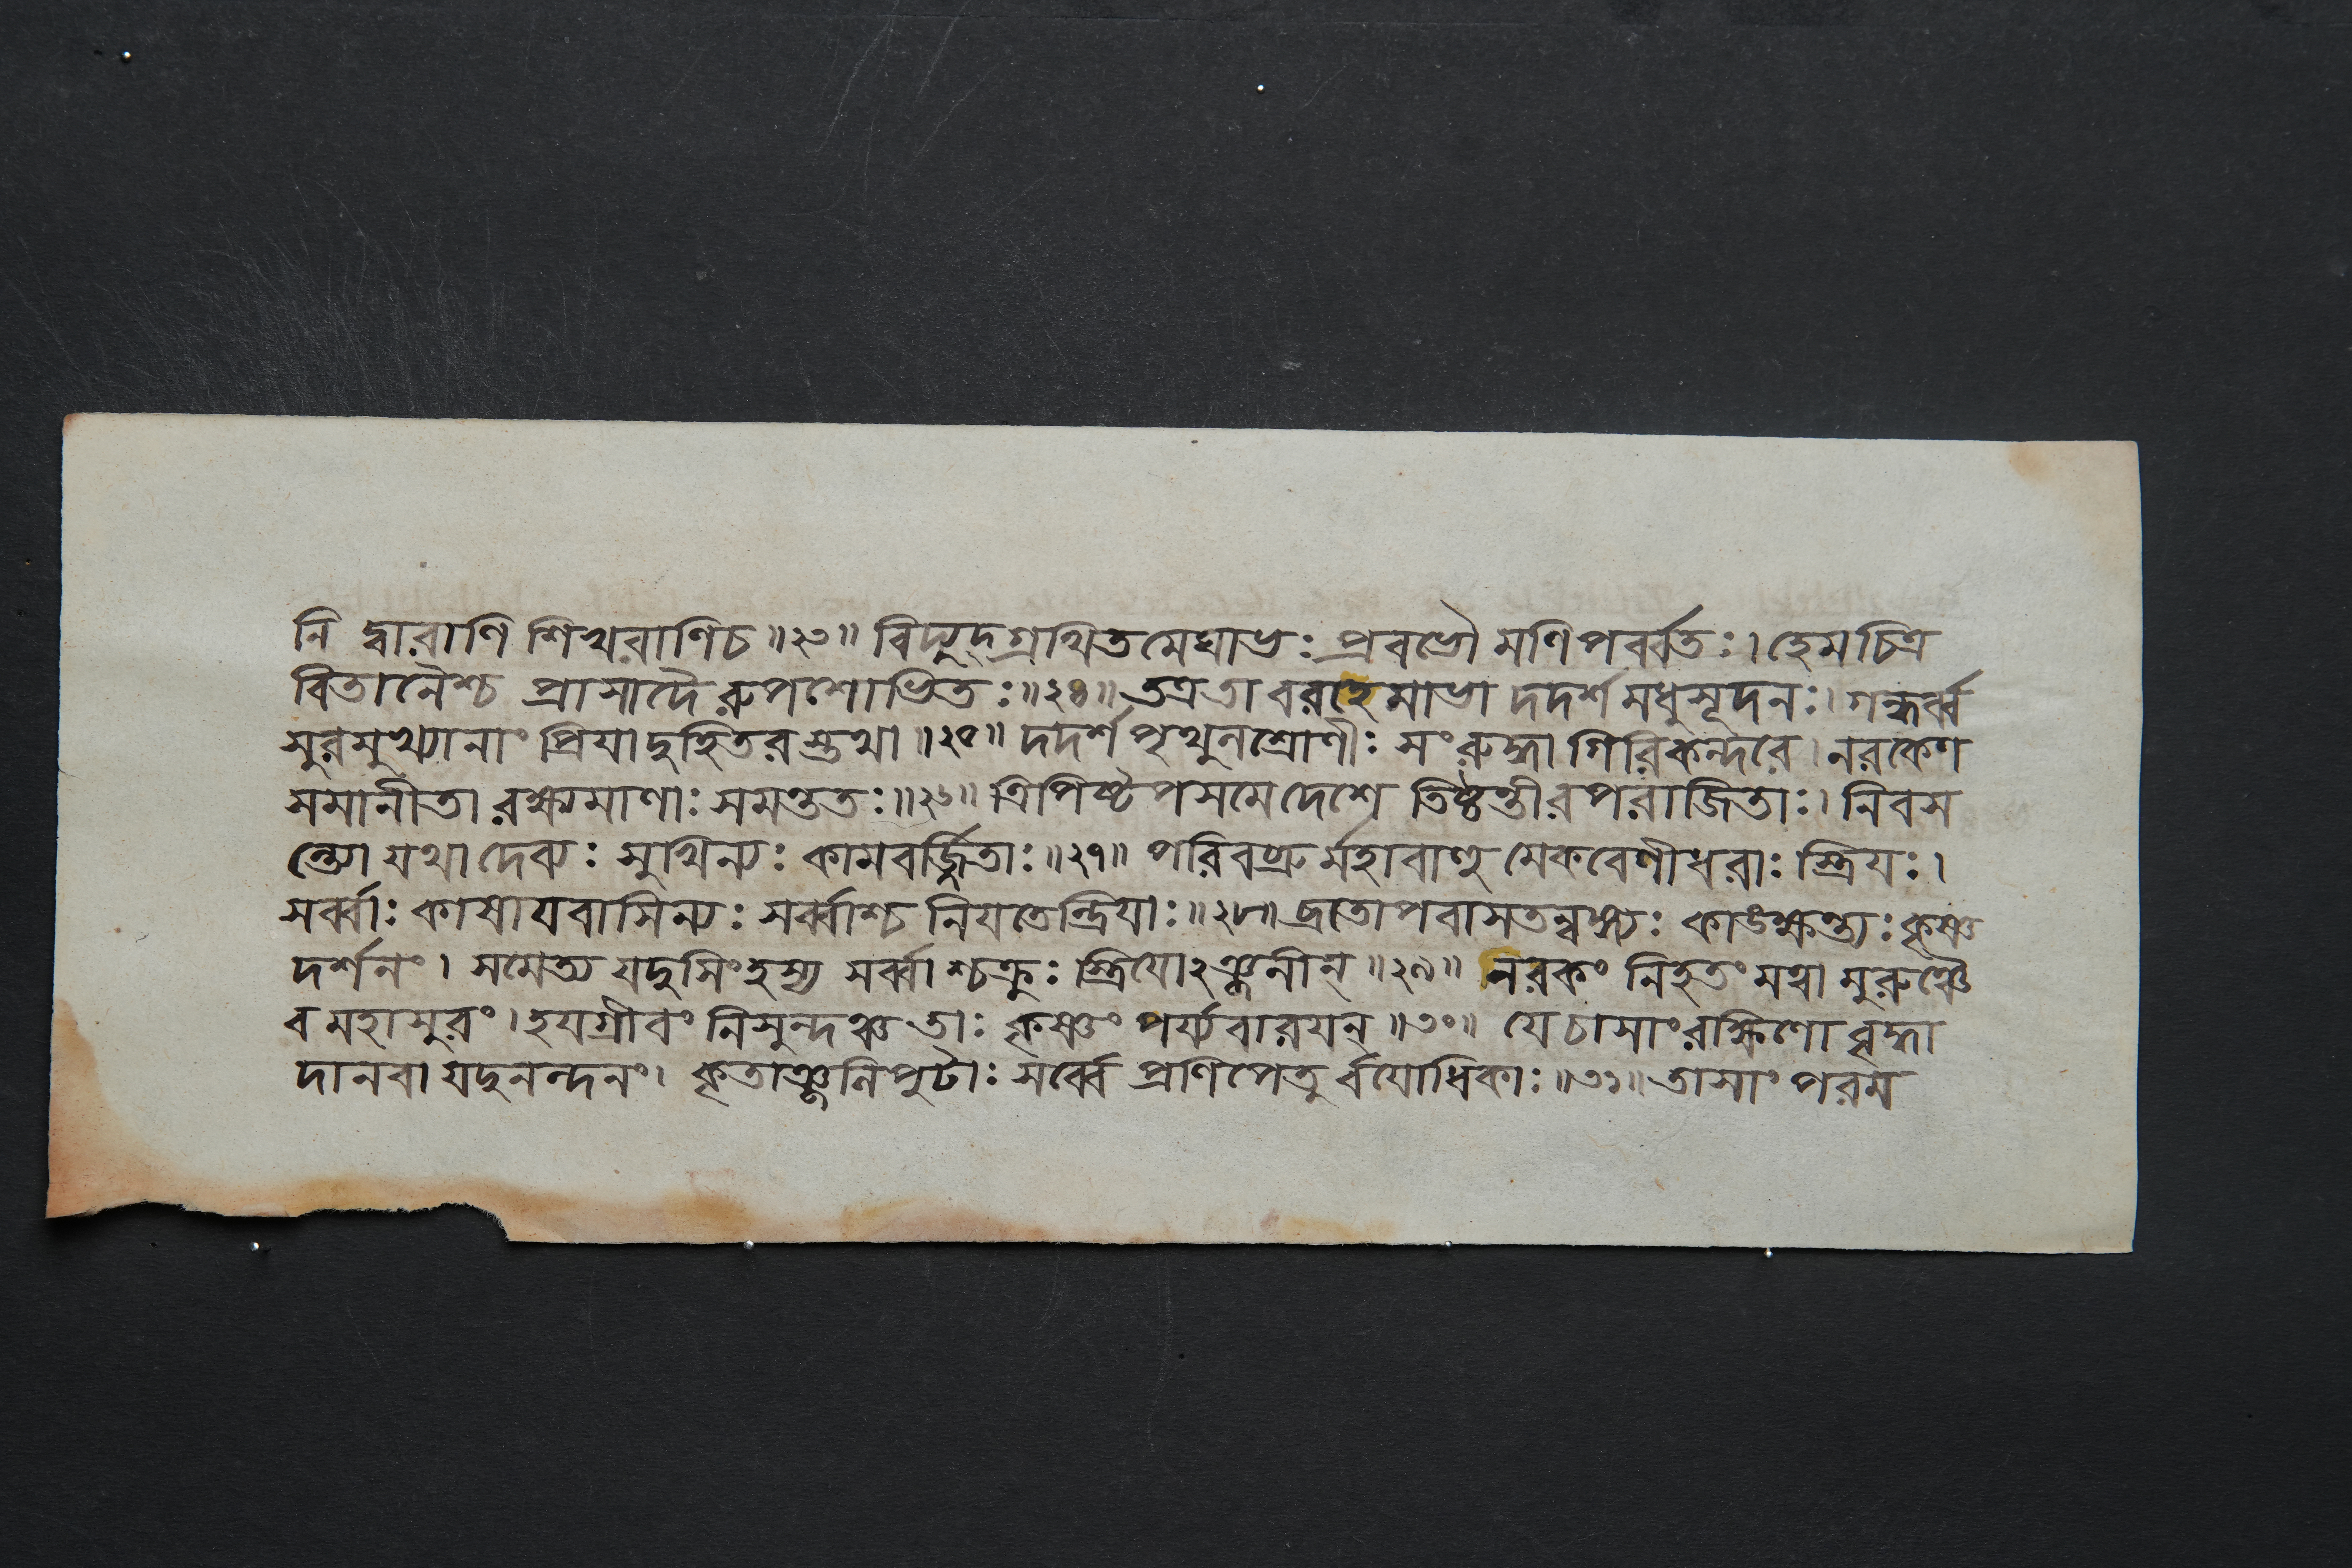 নি দ্বারাণি শিখরাণিচ ॥২৩॥ বিদ্যুদ্গ্রথিতমেঘাভঃ প্রবভৌ মণিপর্ব্বতঃ। হেমচিত্র
বিতানৈশ্চ প্রাসাদৈরুপশোভিতঃ॥২৪॥ তত্রতা বরাহেমাভা দদর্শ মধুসূদনঃ। গন্ধর্ব্ব
সুরমুখ্যানাং প্রিযাদুহিতরস্তথা ॥২৫॥ দদর্শ পৃথুনশ্রোণীঃ সংরুদ্ধা গিরিকন্দরে। নরকেণ
সমানীতা রক্ষ্যমাণাঃ সমন্ততঃ॥২৬॥ ত্রিপিষ্টপসমেদেশে তিষ্ঠন্তীরপরাজিতাঃ। নিবস
ন্ত্যো যথা দেব্যঃ সুখিন্যঃ কামবর্জ্জিতাঃ॥২৭॥ পরিবব্রুর্মহাবাহু মেকবেণীধরাঃ স্ত্রিযঃ।
সর্ব্বাঃ কাষাযবাসিন্যঃ সর্ব্বাশ্চ নিযতেন্দ্রিযাঃ॥২৮॥ ব্রতোপবাসতন্বঙ্গ্যঃ কাঙক্ষন্ত্যঃ কৃষ্ণ
দর্শনং। সমেত্য যদুসিংহস্য সর্ব্বাশ্চক্রুঃ স্ত্রিযোঽঞ্জলীন্ ॥২৯॥ নরকং নিহতং মত্বা মুরুঞ্চৈ
ব মহাসুরং। হযগ্রীবং নিসুন্দঞ্চ তাঃ কৃষ্ণং পর্য্যবারযন্ ॥৩০॥ যে চাসাং রক্ষিণো বৃদ্ধা
দানবা যদুনন্দনং। কৃতাঞ্জলিপুটাঃ সর্ব্বে প্রণিপেতুর্বযোধিকাঃ॥৩১॥ তাসাং পরম